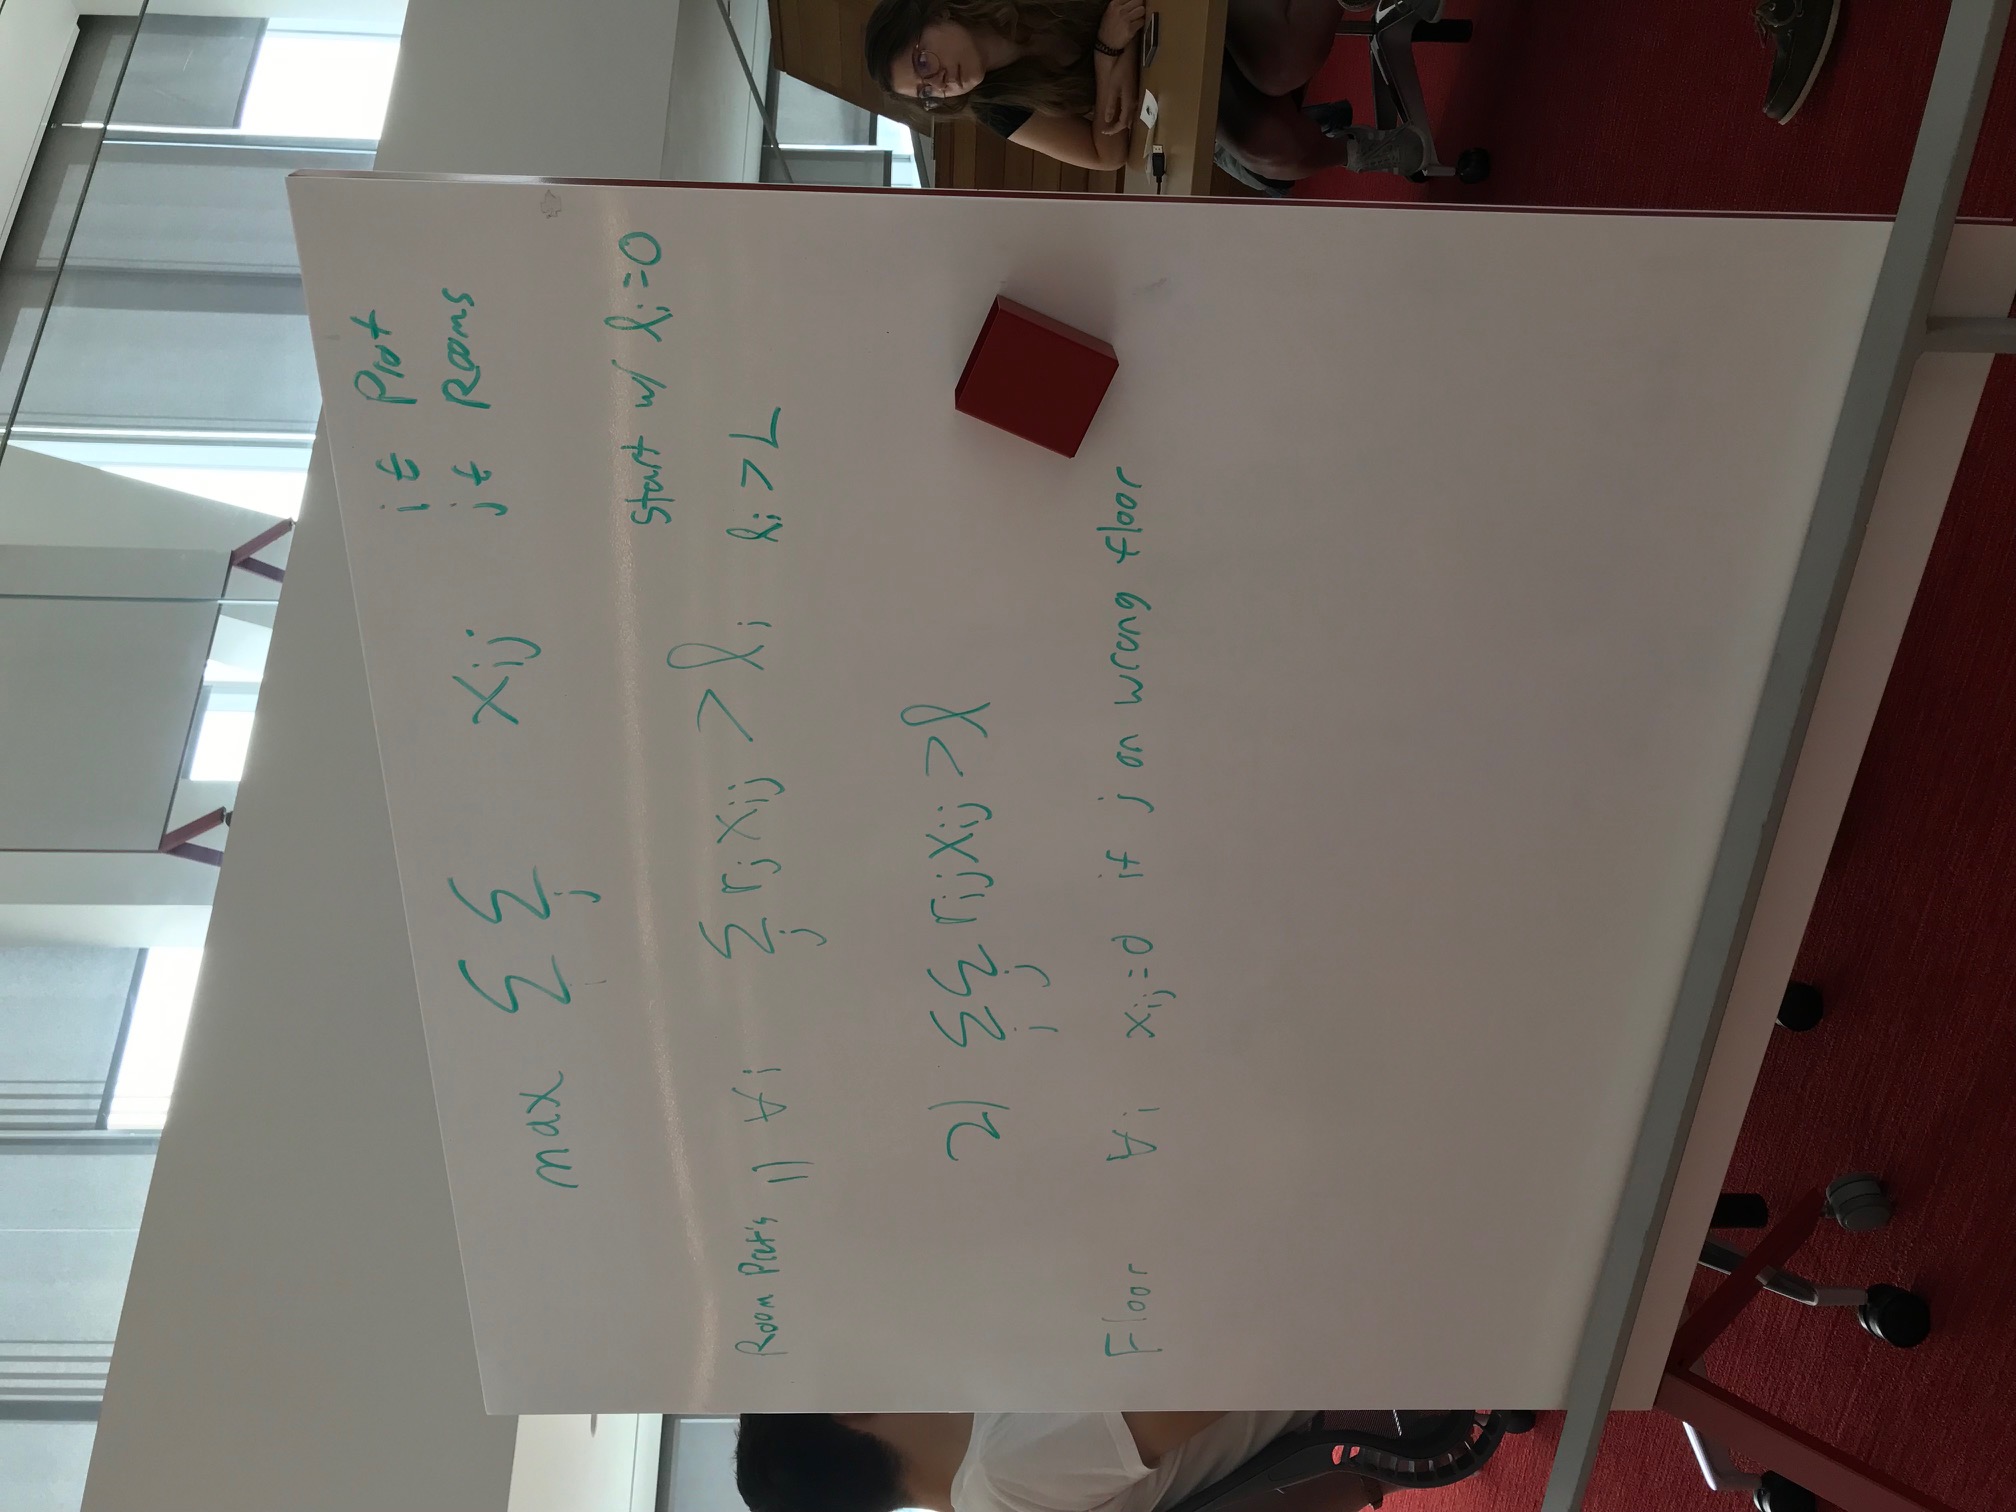 i ∈ Prof
j ∈ Rooms
max Σ_i Σ_j x_ij
start w/ l_i = 0
Room Pref's 1) ∀i Σ_j r_j x_ij > l_i l_i > L
2) Σ_i Σ_j r_ij x_ij > l
Floor ∀i x_ij = 0 if j on wrong floor